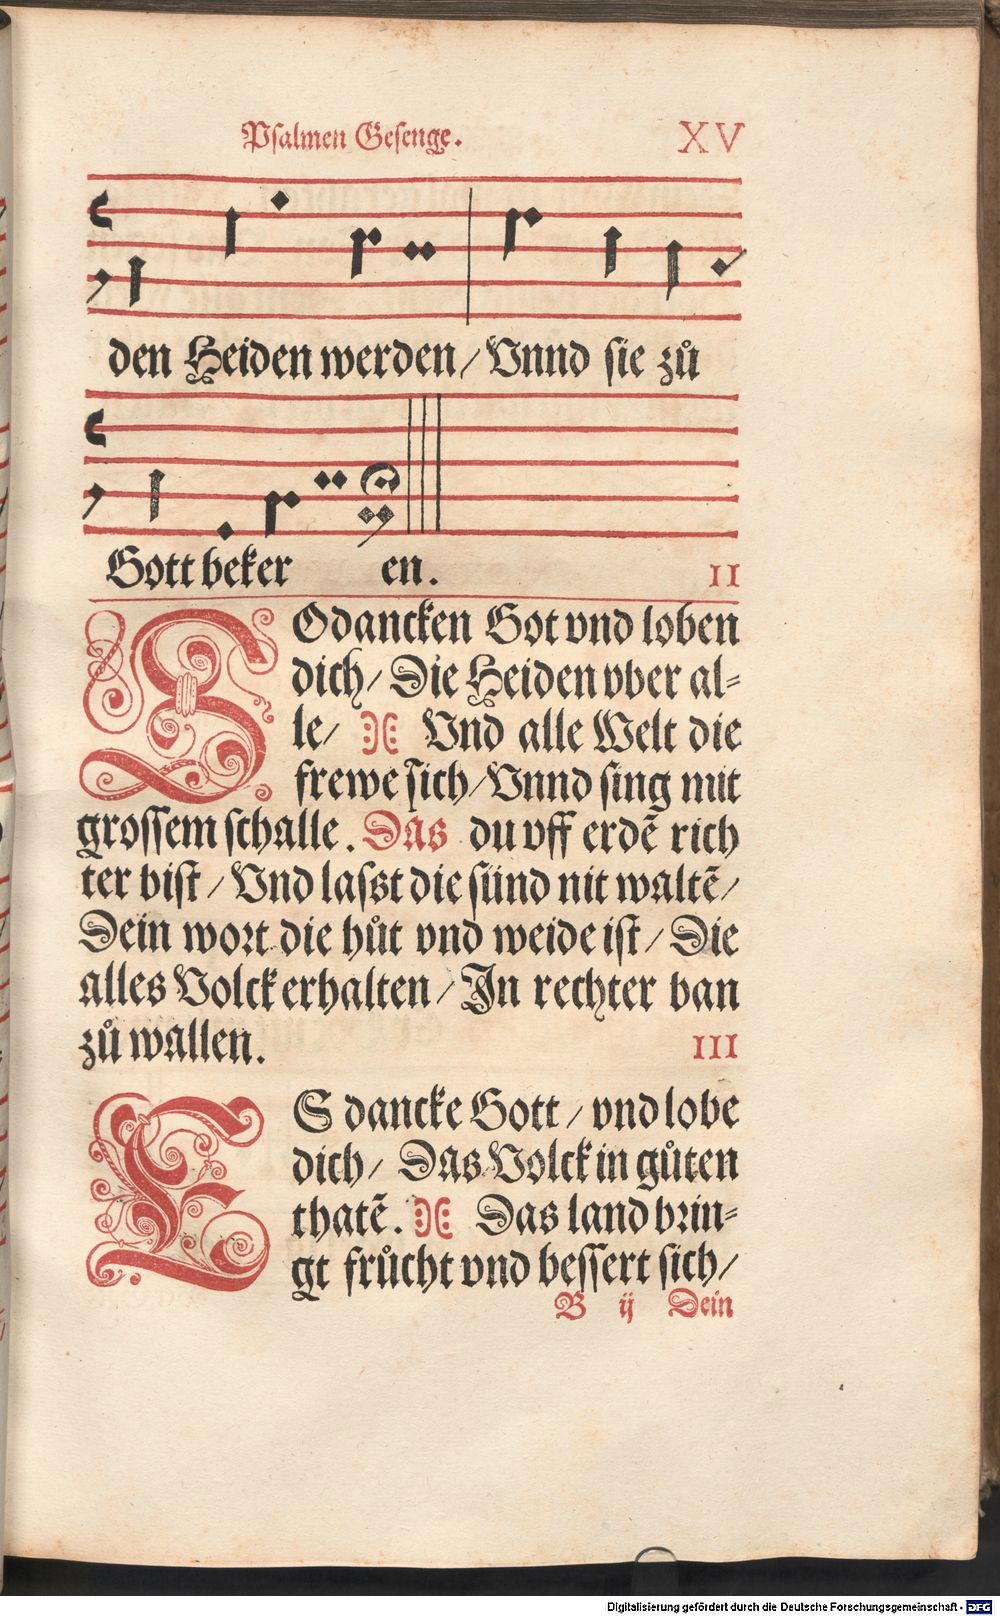 Psalmen Gesenge. XV
den Heiden werden/ Vnnd sie zů
Gott beker en.
II
SOdancken Got vnd loben
dich/ Die Heiden vber al-
le/ Vnd alle Welt die
frewe sich/ Vnnd sing mit
grossem schalle. Das du vff erdẽ rich
ter bist/ Vnd lasst die sünd nit waltẽ/
Dein wort die hůt vnd weide ist/ Die
alles Volck erhalten/ In rechter ban
zů wallen.
III
ES dancke Gott/ vnd lobe
dich/ Das Volck in gůten
thatẽ. Das land brin-
gt frůcht vnd bessert sich/
B ij Dein
Digitalisierung gefördert durch die Deutsche Forschungsgemeinschaft - DFG